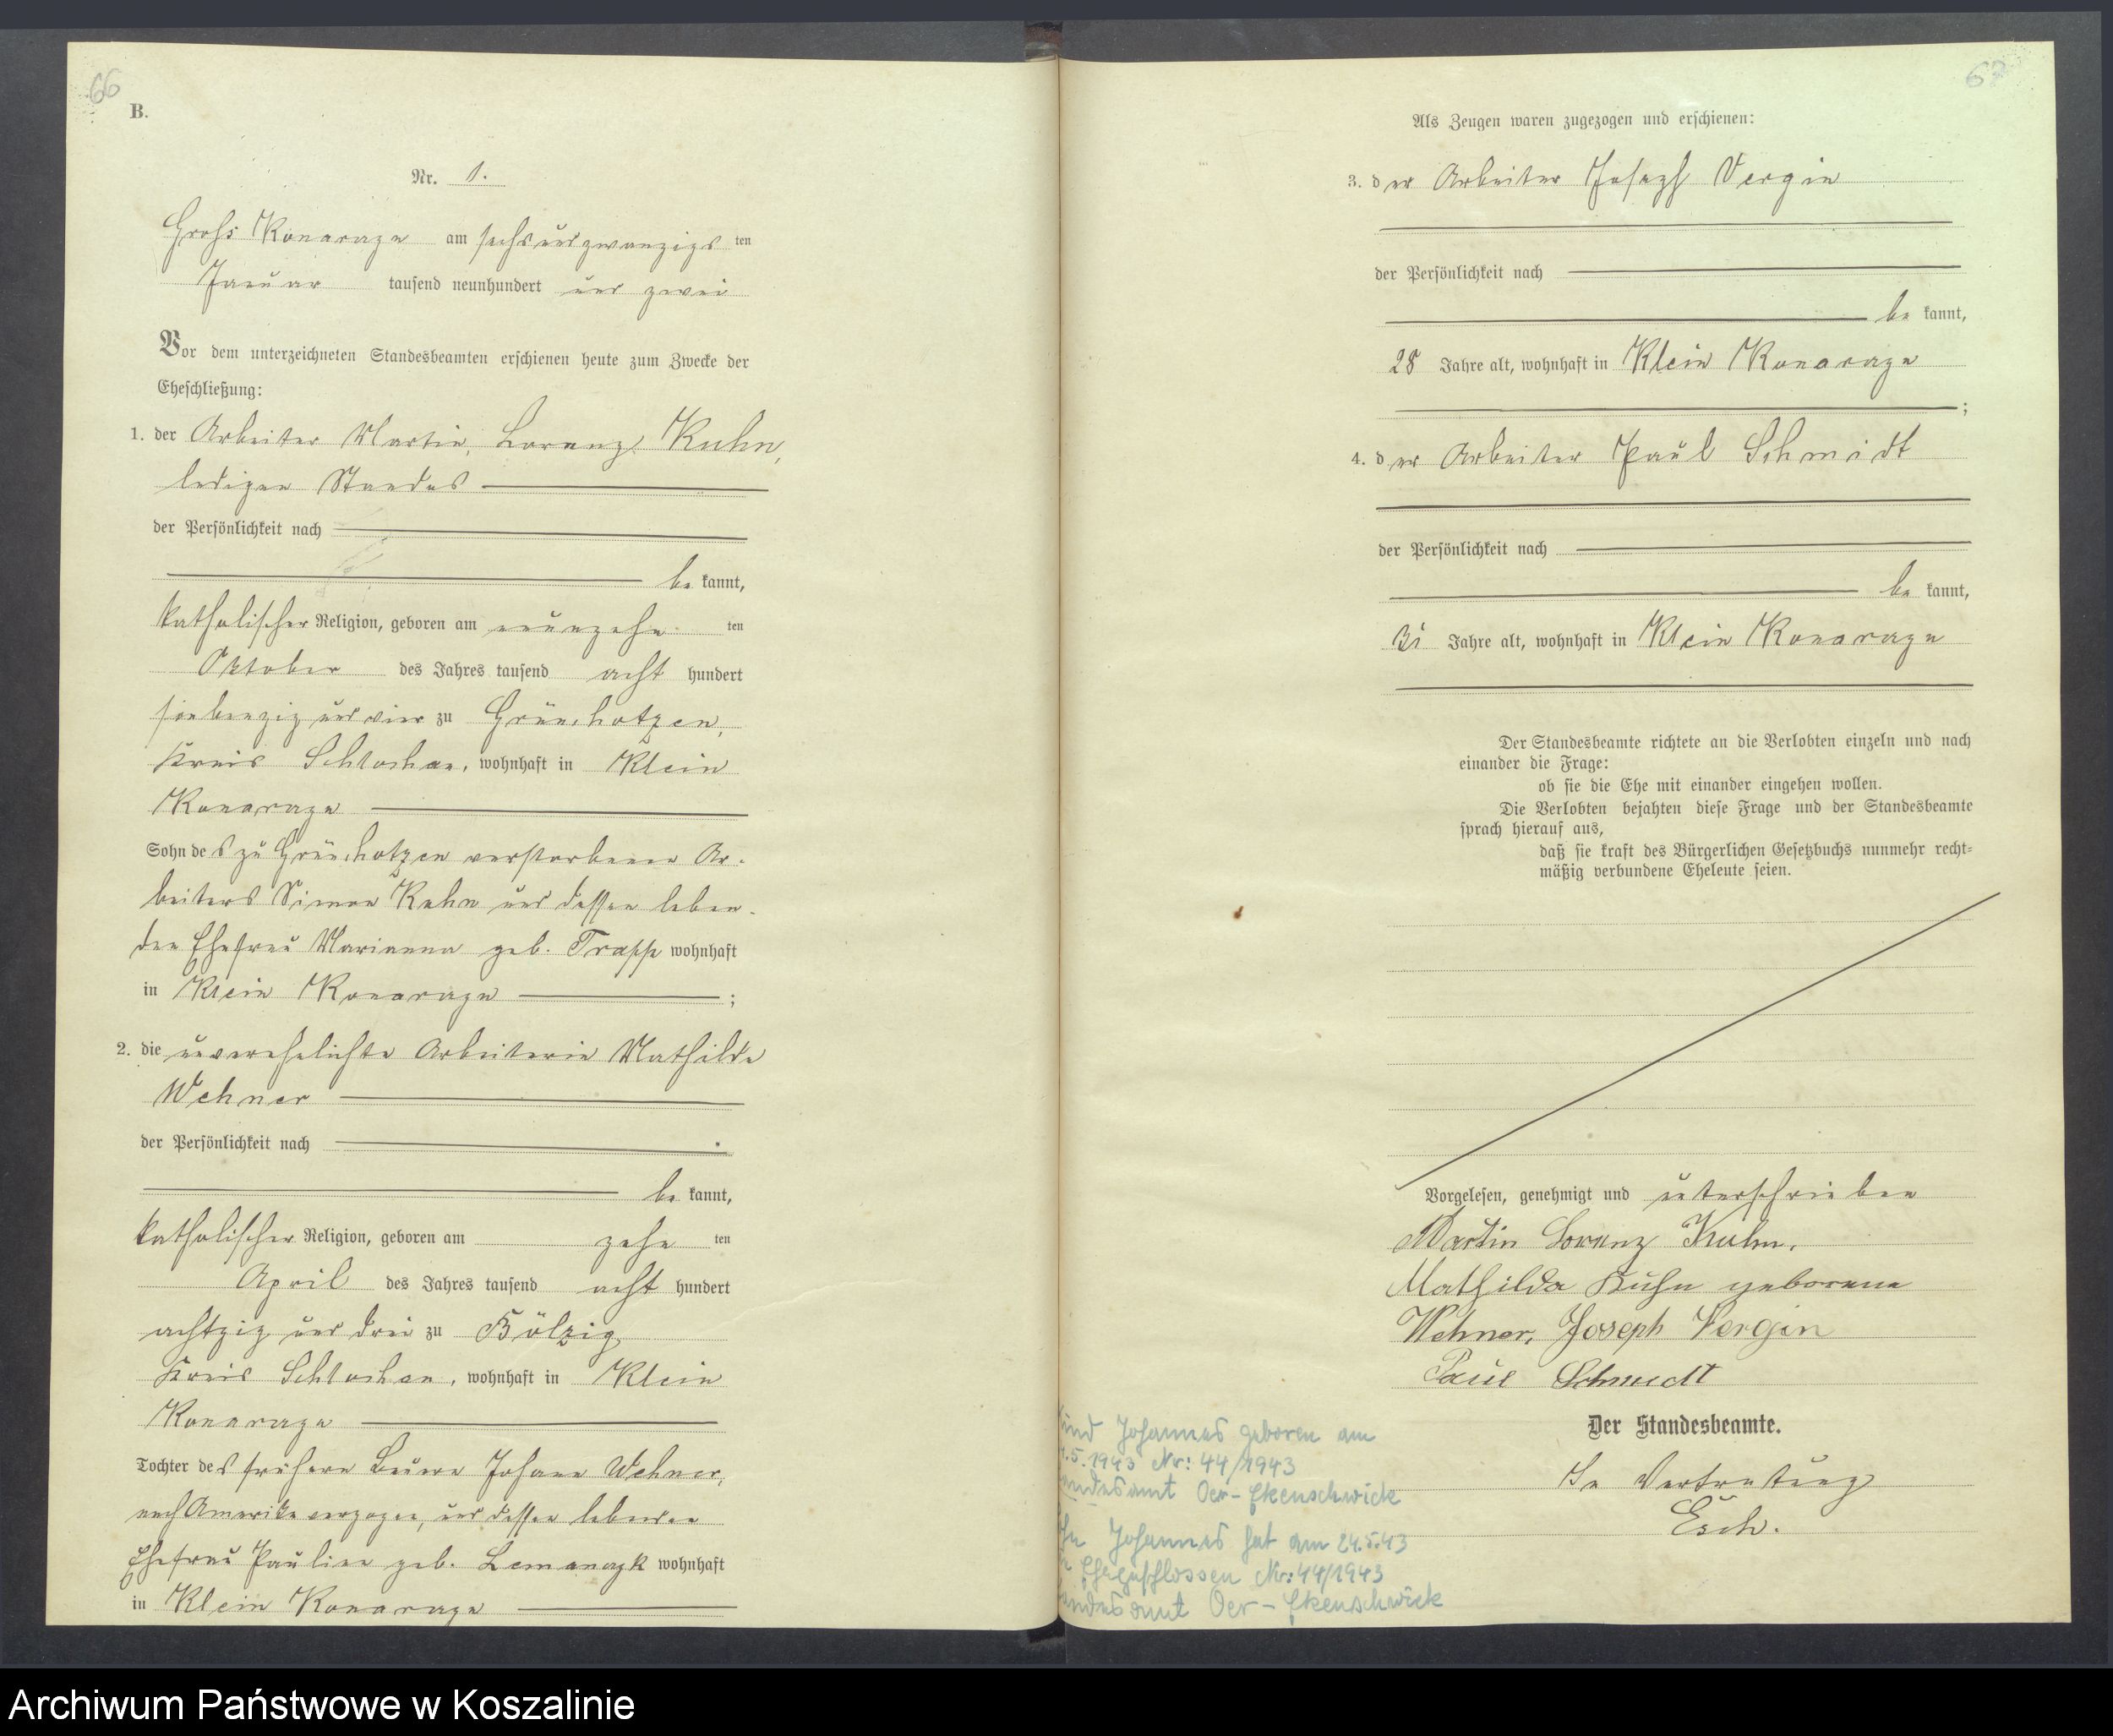 66
B.
Nr. 1.
Groß Konarczyn am sechsundzwanzigs ten
Januar tausend neunhundert und zwei
Vor dem unterzeichneten Standesbeamten erschienen heute zum Zwecke der
Eheschließung:
1. der Arbeiter Martin, Lorenz Kuhn,
ledigen Standes
der Persönlichkeit nach
be kannt,
katholischer Religion, geboren am neunzehn ten
Oktober des Jahres tausend acht hundert
siebenzig und vier zu Grünchotzen,
Kreis Schlochau, wohnhaft in Klein
Konarczyn
Sohn des zu Grünchotzen verstorbenen Ar-
beiters Simon Kuhn und dessen leben-
den Ehefrau Marianna geb. Trapp wohnhaft
in Klein Konarczyn ;
2. die unverehelichte Arbeiterin Mathilde
Wehner
der Persönlichkeit nach
be kannt,
katholischer Religion, geboren am zehn ten
April des Jahres tausend acht hundert
achtzig und drei zu Bölzig
Kreis Schlochau, wohnhaft in Klein
Konarczyn
Tochter des frühern Johann Wehner,
nach Amerika verzogen, und dessen lebenden
Ehefrau Pauline geb. Lemanczyk wohnhaft
in Klein Konarczyn
67
Als Zeugen waren zugezogen und erschienen:
3. der Arbeiter Joseph Vergin
der Persönlichkeit nach
be kannt,
28 Jahre alt, wohnhaft in Klein Konarczyn
;
4. der Arbeiter Paul Schmidt
der Persönlichkeit nach
be kannt,
31 Jahre alt, wohnhaft in Klein Konarczyn
Der Standesbeamte richtete an die Verlobten einzeln und nach
einander die Frage:
ob sie die Ehe mit einander eingehen wollen.
Die Verlobten bejahten diese Frage und der Standesbeamte
sprach hierauf aus,
daß sie kraft des Bürgerlichen Gesetzbuchs nunmehr recht-
mäßig verbundene Eheleute seien.
Vorgelesen, genehmigt und unterschrieben
Martin Lorenz Kuhn.
Mathilda Kuhn geborene
Wehner, Joseph Vergin
Paul Schmidt
Der Standesbeamte.
In Vertretung
Esch.
Johannes geboren am
.5.1943 Nr: 44/1943
Oer-Erkenschwick
Johannes hat am 24.5.43
Ehe geschlossen Nr: 44/1943
Oer-Erkenschwick
Archiwum Państwowe w Koszalinie